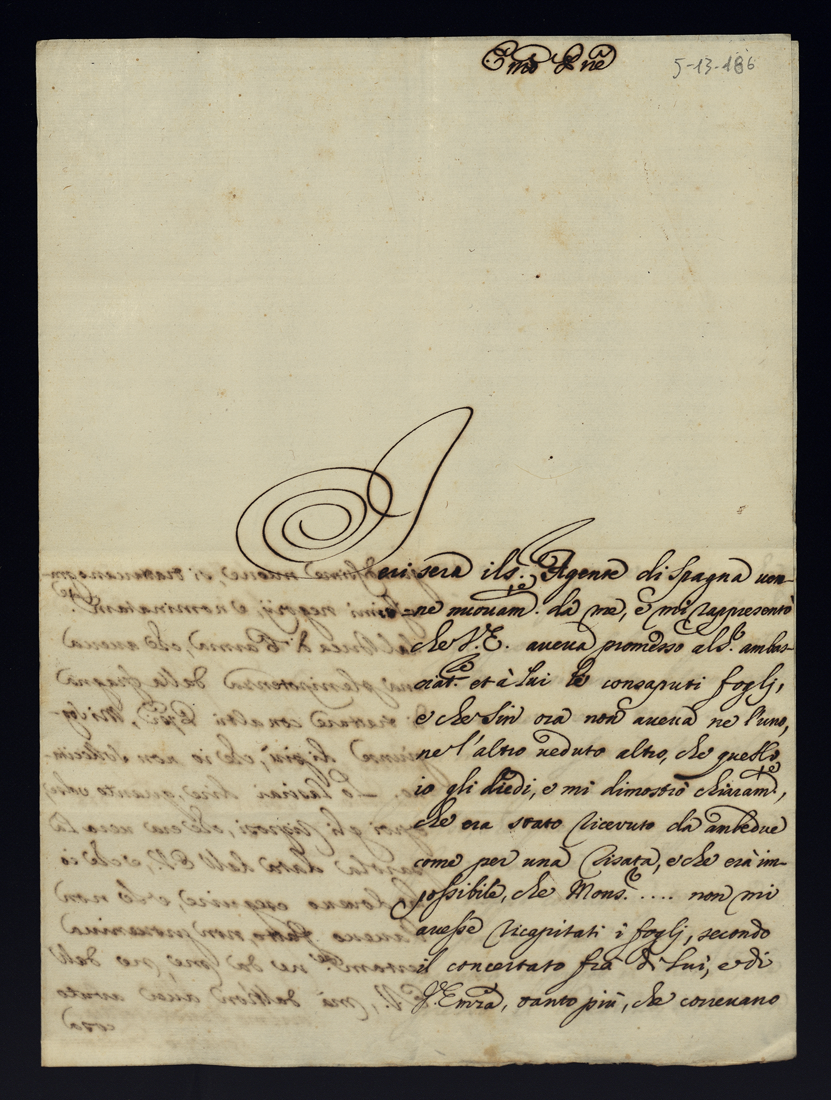 Em̃o Sig.re
5-13-186
Ieri sera il S.r Agente di Spagna ven-
ne nuovam.te da me, e mi rappresentò
che V.E. aveva promesso al S.r ambas-
ciat.re et à Lui le consaputi foglj,
e che sin ora non aveva ne l'uno,
ne l'altro veduto altro, che quello
io gli diedi, e mi dimostrò chiaram.te,
che era stato ricevuto da ambedue
come per una risata, e che era im-
possibile, che Mons.r .... non mi
avesse ricapitati i foglj, secondo
il concertato frà di Lui, e di
V. Em̃za, tanto più, che correvano